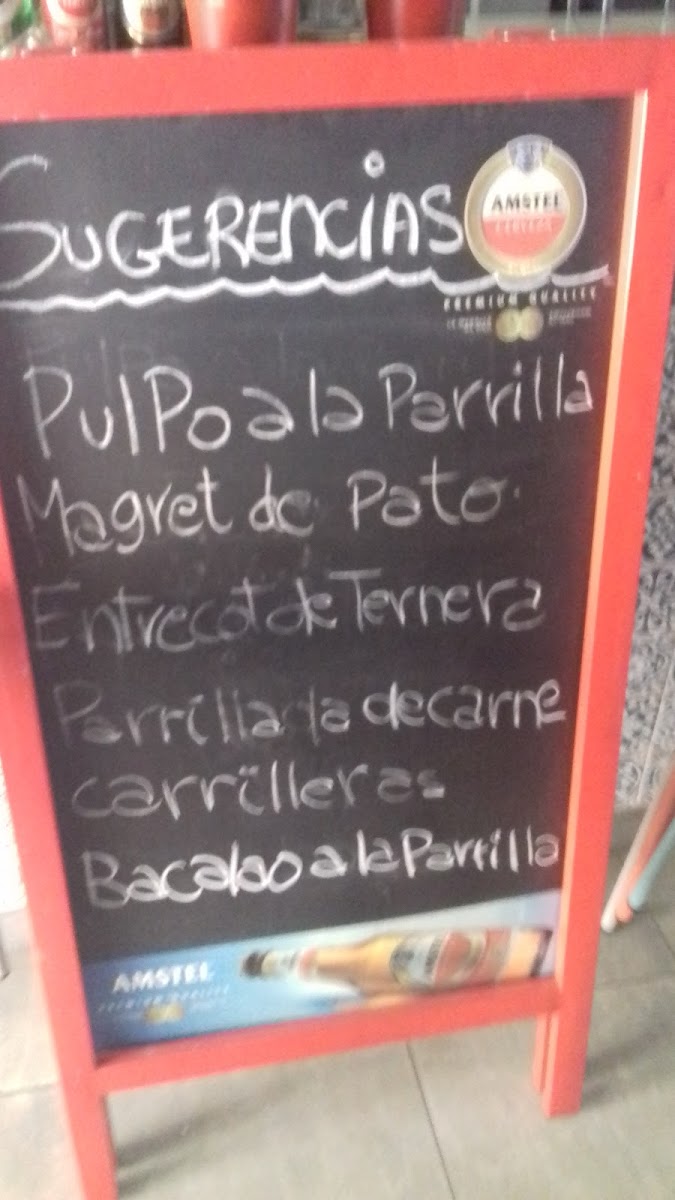 SUGERENCIAS
AMSTEL
CERVEZA
PREMIUM QUALITY
Pulpo a la Parrilla
Magret de Pato.
Entrecot de Ternera
Parrillada de carne
carrilleras
Bacalao a la Parrilla
AMSTEL
PREMIUM QUALITY